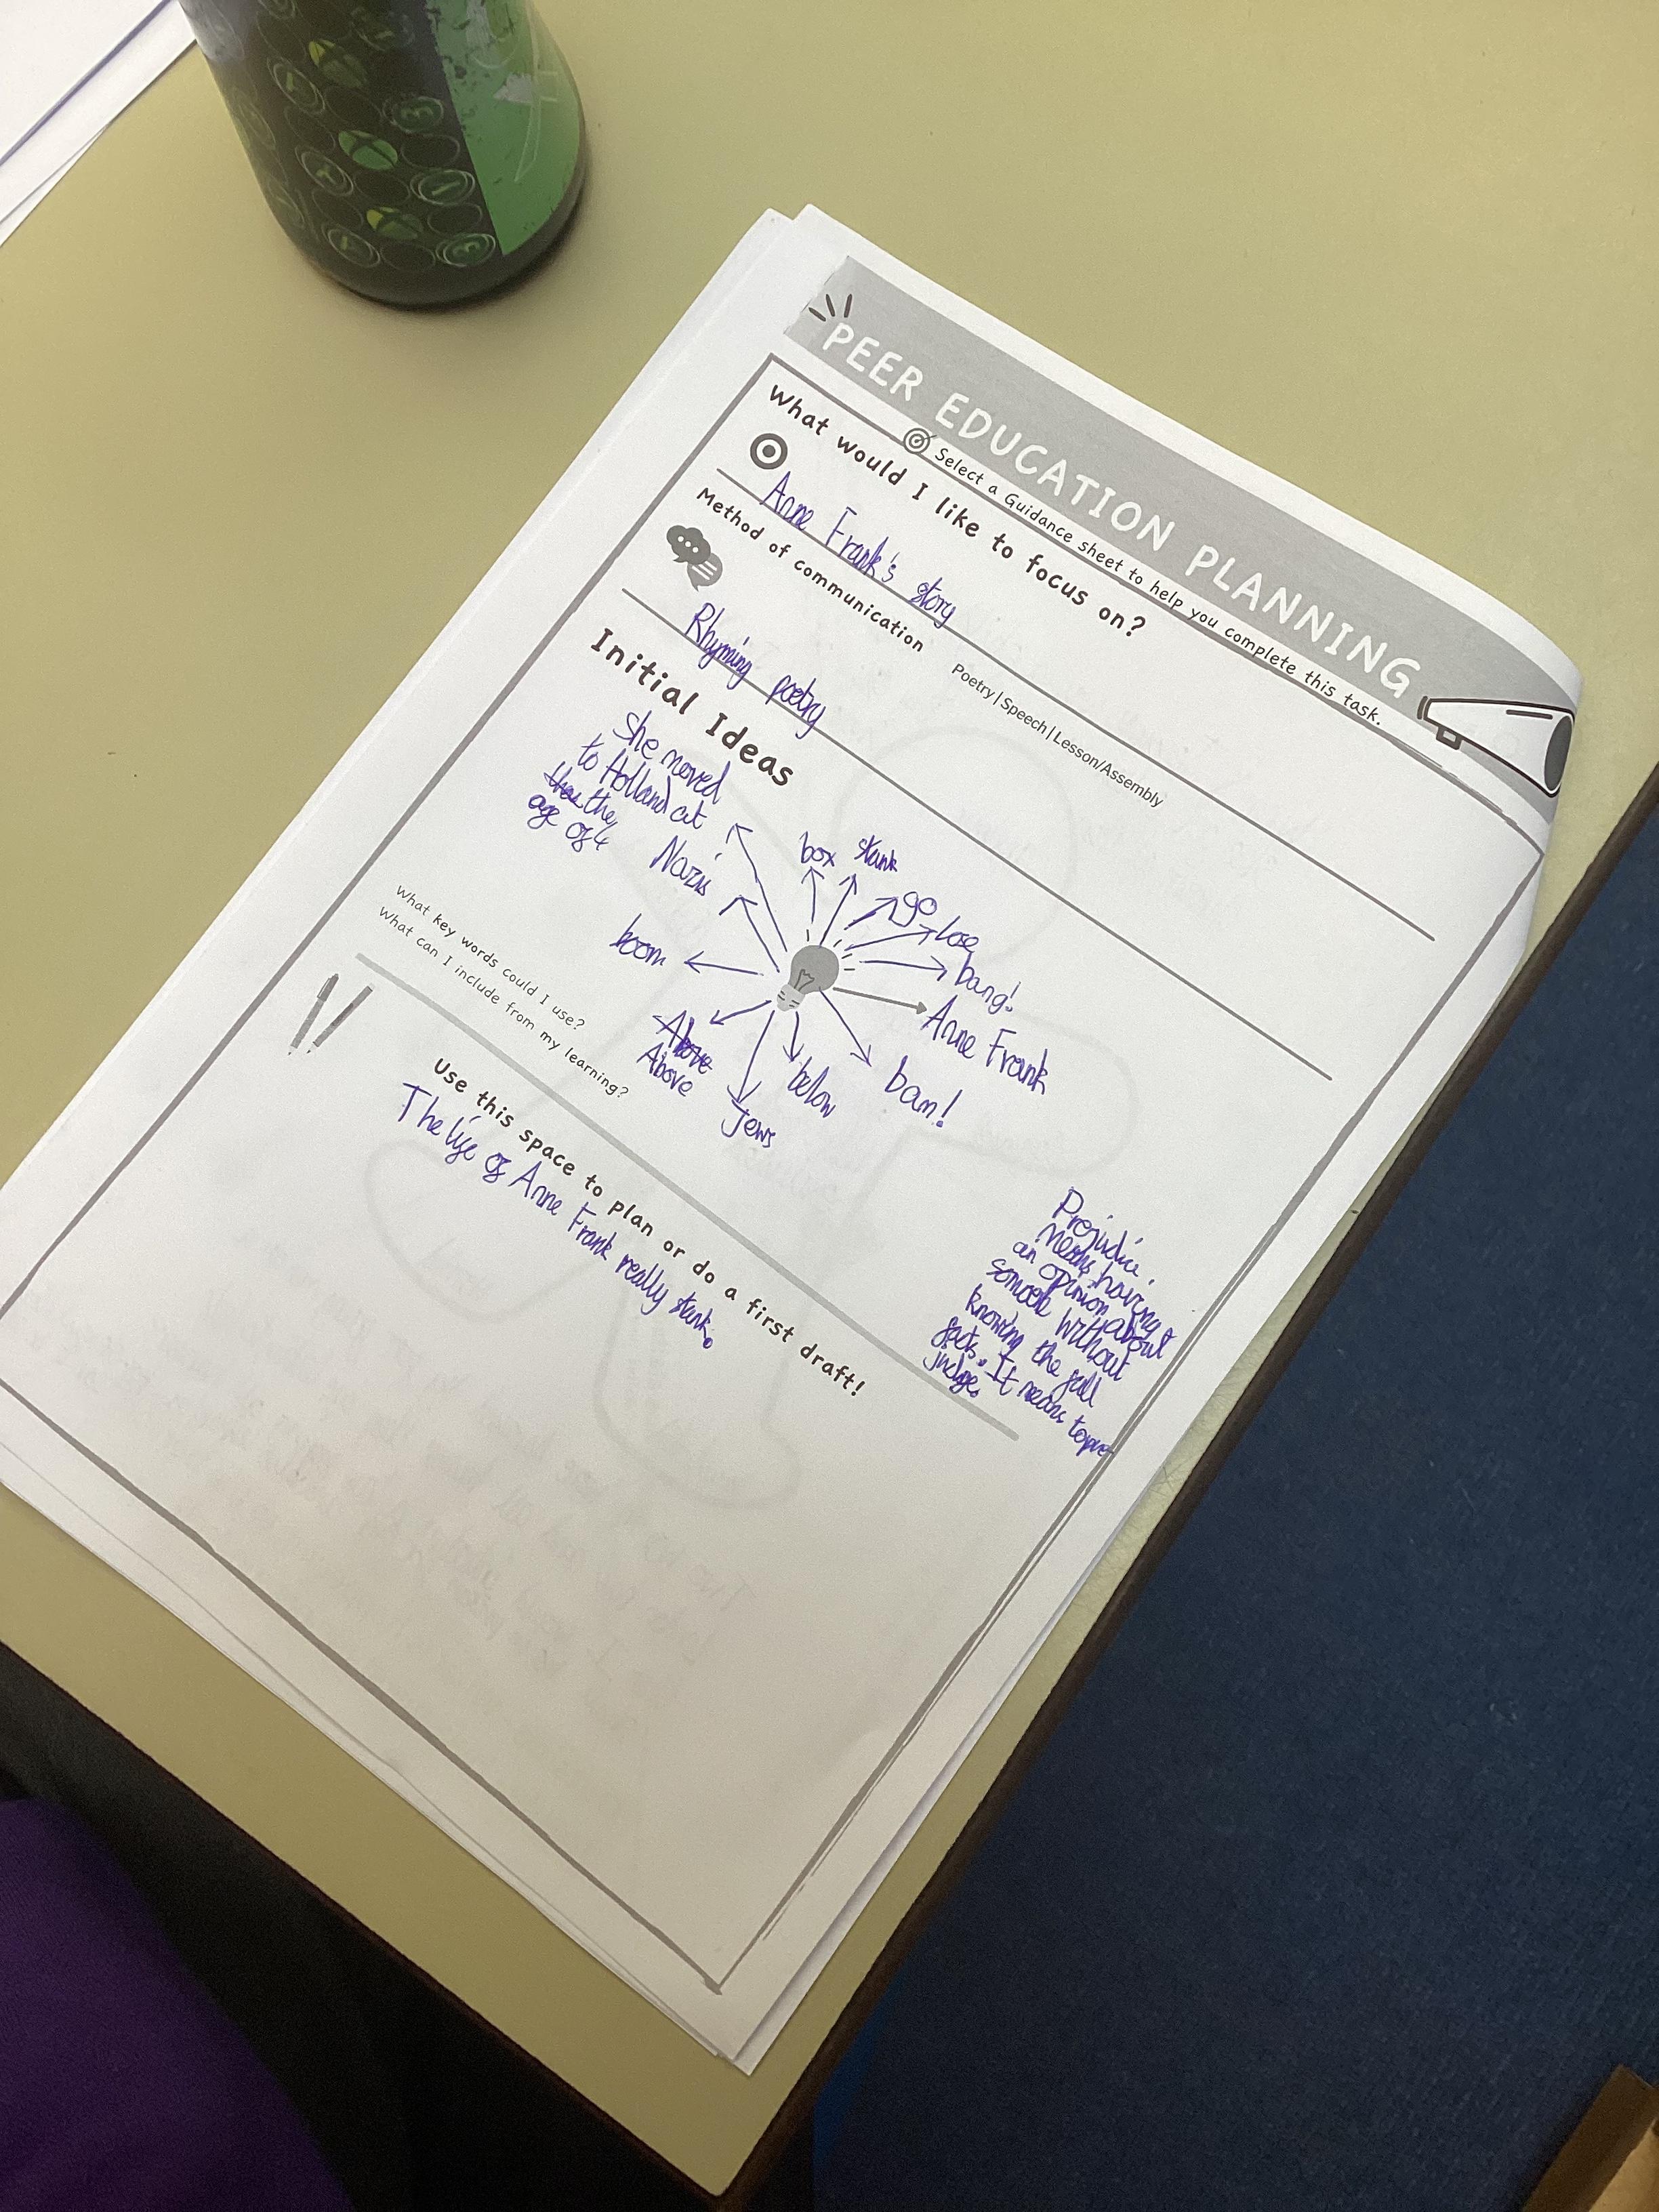 PEER EDUCATION PLANNING
Select a Guidance sheet to help you complete this task.
What would I like to focus on?
Anne Frank's story
Method of communication
Poetry | Speech | Lesson/Assembly
Rhyming poetry
Initial Ideas
She moved
to Holland at
the
age of 4
Nazis
box
stank
go
lose
bang!
Anne Frank
bam!
below
Jews
Above
Above
boom
What key words could I use?
What can I include from my learning?
Prejudice
means having
an opinion about
without
knowing the full
facts. It means to pre
judge.
Use this space to plan or do a first draft!
The life of Anne Frank really stank.